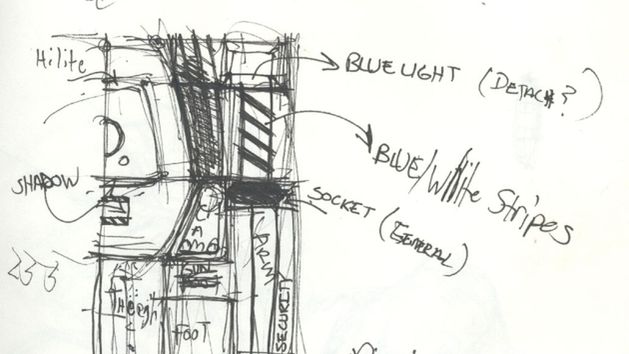 Hilite
BLUE LIGHT (DETACH?)
BLUE/White Stripes
SHADOW
SOCKET (GENERAL)
ARM
GUN
Theigh
FOOT
SECURITY